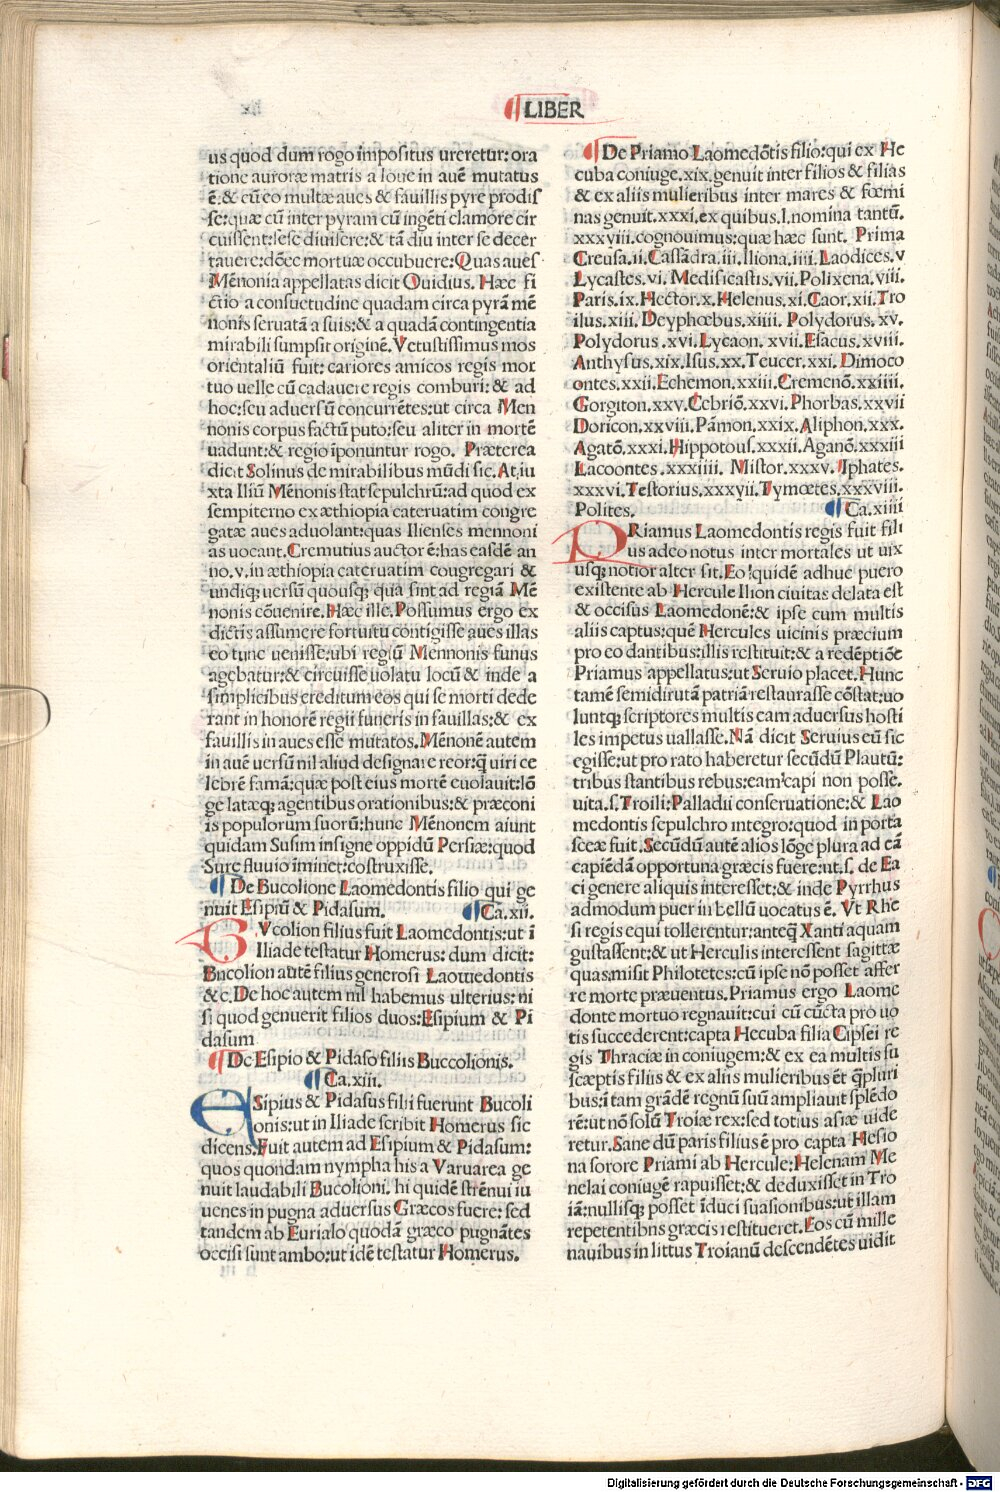 LIBER
us quod dum rogo impositus ureretur: ora
tione auroræ matris a Ioue in auē mutatus
ē:& cū eo multæ aues & fauillis pyre prodis
se:quæ cū inter pyram cū ingēti clamore cir
cuissent:sese diuisere:& tā diu inter se decer
tauere:donec mortuæ occubuere:Quas aues
Mēnonia appellatas dicit Ouidius. Hæc fi
ctio a consuetudine quadam circa pyrā mē
nonis seruatā a suis:& a quadā contingentia
mirabili sumpsit originē.Vetustissimus mos
orientaliū fuit: cariores amicos regis mor
tuo uelle cū cadauere regis comburi: & ad
hoc:seu aduersū concurrētes:ut circa Men
nonis corpus factū puto:seu aliter in mortē
uadunt:& regio iponuntur rogo. Præterea
dicit Solinus de mirabilibus mūdi sic. At iu
xta Iliū Mēnonis stat sepulchrū:ad quod ex
sempiterno ex æthiopia cateruatim congre
gatæ aues aduolant:quas Ilienses mennoni
as uocant.Cremutius auctor ē:has easdē an
no.v.in æthiopia cateruatim cougregari &
undiq; uersū quousq; qua sint ad regiā Mē
nonis cōuenire.Hæc ille.Possumus ergo ex
dictis assumere fortuitu contigisse aues illas
eo tunc uenisse:ubi regiū Mennonis funus
agebatur:& circuisse uolatu locū & inde a
simplicibus creditum eos qui se morti dede
rant in honorē regii funeris in fauillas:& ex
fauillis in aues esse mutatos.Mēnonē autem
in auē uersū nil aliud designare reor:q̄ uiri ce
lebrē famā:quæ post eius mortē euolauit:lō
ge latæq; agentibus orationibus:& præconi
is populorum suorū:hunc Mēnonem aiunt
quidam Susim insigne oppidū Persiæ:quod
Sure fluuio iminet:costruxisse.
De Bucolione Laomedontis filio qui ge
nuit Esipiū & Pidasum. Ca.xii.
BVcolion filius fuit Laomedontis:ut ī
Iliade testatur Homerus: dum dicit:
Bucolion autē filius generosi Laomedontis
&c.De hoc autem nil habemus ulterius: ni
si quod genuerit filios duos:Esipium & Pi
dasum
De Esipio & Pidaso filiis Buccolionis.
Ca.xiii.
ESipius & Pidasus filii fuerunt Bucoli
onis:ut in Iliade scribit Homerus sic
dicens.Fuit autem ad Esipium & Pidasum:
quos quondam nympha his a Varuarea ge
nuit laudabili Bucolioni. hi quidē strēnui iu
uenes in pugna aduersus Græcos fuere: sed
tandem ab Eurialo quodā græco pugnātes
occisi sunt ambo:ut idē testatur Homerus.
De Priamo Laomedōtis filio:qui ex He
cuba coniuge.xix.genuit inter filios & filias
& ex aliis mulieribus inter mares & fœmi
nas genuit.xxxi.ex quibus.l.nomina tantū.
xxxviii.cognouimus:quæ hæc sunt. Prima
Creusa.ii.Cassādra.iii.Iliona.iiii.Laodices.v
Lycastes.vi. Medisicastis.vii.Polixena.viii.
Paris.ix.Hector.x.Helenus.xi.Caor.xii.Tro
ilus.xiii.Deyphœbus.xiiii. Polydorus. xv.
Polydorus.xvi.Lycaon.xvii.Esacus.xviii.
Anthysus.xix.Isus.xx.Teucer.xxi.Dimoco
ontes.xxii.Echemon.xxiii.Cremenō.xxiiii.
Gorgiton.xxv.Cebriō.xxvi.Phorbas.xxvii
Doricon.xxviii.Pāmon.xxix.Aliphon.xxx.
Agatō.xxxi.Hippotous.xxxii.Aganō.xxxiii
Lacoontes.xxxiiii. Mistor.xxxv. Iphates.
xxxvi.Testorius.xxxyii.Tymœtes.xxxviii.
Polites. Ca.xiiii
PRiamus Laomedontis regis fuit fili
us adeo notus inter mortales ut uix
usq; notior alter sit.Eo quidē adhuc puero
existente ab Hercule Ilion ciuitas delata est
& occisus Laomedonē:& ipse cum multis
aliis captus:quē Hercules uicinis præcium
pro eo dantibus:illis restituit:& a redēptiōe
Priamus appellatus:ut Seruio placet.Hunc
tamē semidirutā patriā restaurasse cōstat:uo
luntq; scriptores multis eam aduersus hosti
les impetus uallasse.Nā dicit Seruius eū sic
egisse:ut pro rato haberetur secūdū Plautū:
tribus stantibus rebus:eam capi non posse.
uita.s.Troili:Palladii conseruatione:& Lao
medontis sepulchro integro:quod in porta
sceæ fuit.Secūdū autē alios lōge plura ad eā
capiēdā opportuna græcis fuere:ut.s. de Ea
ci genere aliquis interesset:& inde Pyrrhus
admodum puer in bellū uocatus ē. Vt Rhe
si regis equi tollerentur:anteq̄ Xanti aquam
gustassent:& ut Herculis interessent sagittæ
quas misit Philotetes:cū ipse nō posset affer
re morte præuentus.Priamus ergo Laome
donte mortuo regnauit:cui cū cūcta pro uo
tis succederent:capta Hecuba filia Cipsei re
gis Thraciæ in coniugem:& ex ea multis su
scæptis filiis & ex aliis mulieribus ēt q̄pluri
bus:ī tam grādē regnū suū ampliauit splēdo
rē:ut nō solū Troiæ rex:sed totius asiæ uide
retur.Sane dū paris filius ē pro capta Hesio
na sorore Priami ab Hercule:Helenam Me
nelai coniugē rapuisset:& deduxisset in Tro
iā:nullisq; posset īduci suasionibus:ut illam
repetentibns græcis restitueret.Eos cū mille
nauibus in littus Troianū descendētes uidit
Digitalisierung gefördert durch die Deutsche Forschungsgemeinschaft - DFG